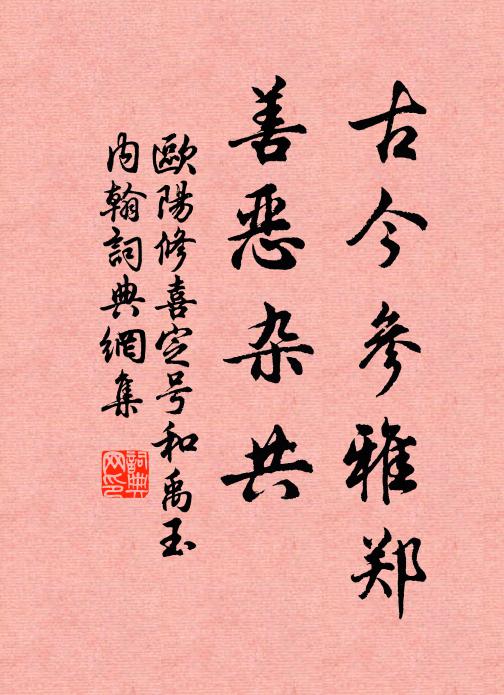 古今參雅郑
善恶杂共
歐陽修喜定号和禹玉
内翰詞典網集
詞典網印